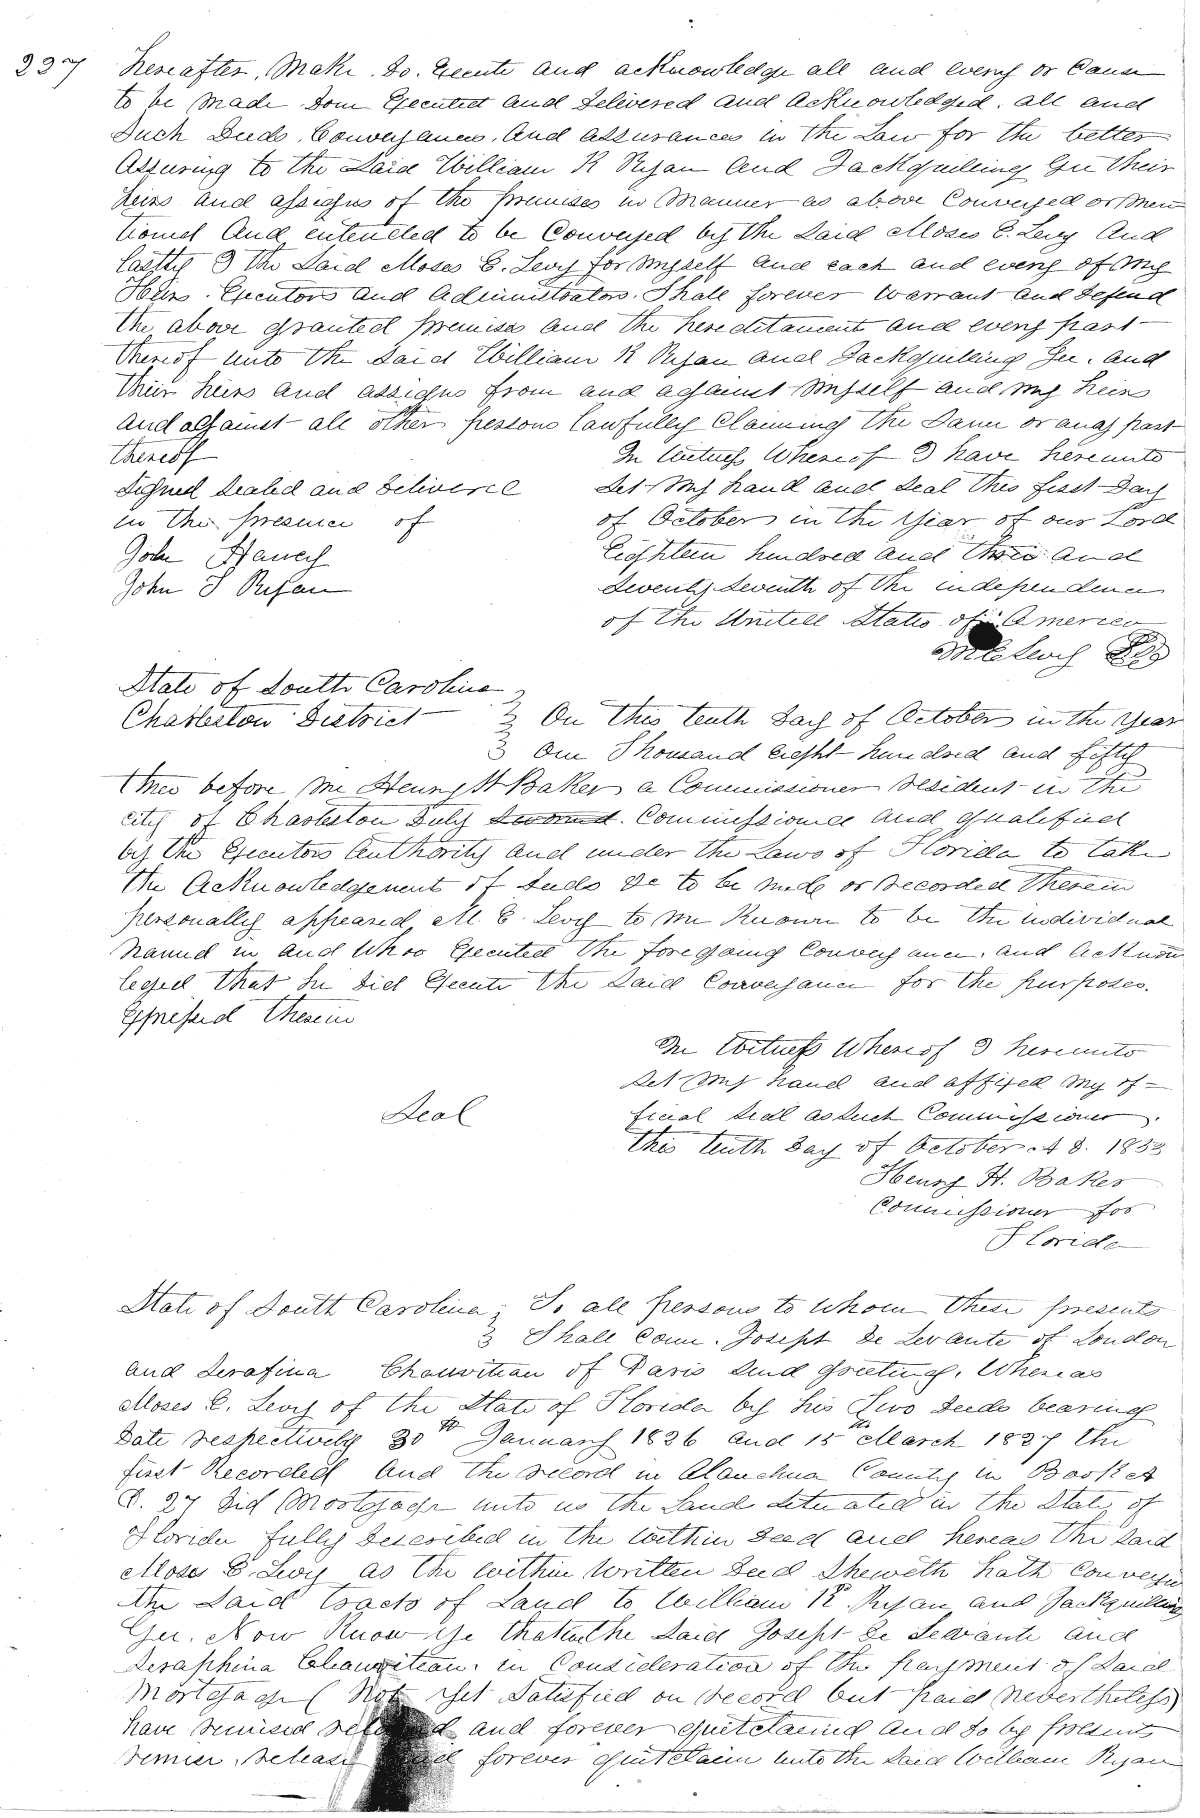 237
hereafter, Make. do. Execute and acknowledge all and every or Cause
to be Made Done Executed and Delivered and Acknowledged. all and
Such Deeds. Conveyances. And assurances in the Law for the better
Assuring to the Said William R Ryan and Jackquilling Gee their
heirs and assigns of the premises in Manner as above Conveyed or Men
tioned And intended to be Conveyed by the Said Moses E. Levy And
lastly I the Said Moses E. Levy for Myself and each and every of My
Heirs. Executors and Administrators. Shall forever Warrant and Defend
the above granted premises and the hereditament and every part
thereof unto the Said William R Ryan and Jackquilling Gee. and
their heirs and assigns from and against Myself and My heirs
and against all other persons lawfully Claiming the Same or any part
thereof
In Witness Whereof I have hereunto
Signed Sealed and Delivered
Set My hand and Seal this first Day
in the presence of
of October in the Year of our Lord
John Haney
Eighteen hundred and three and
John S Ryan
Seventy Seventh of the independence
of the United States of America
M E Levy
State of South Carolina
Charleston District
On this tenth Day of October in the Year
One Thousand eight hundred and fifty
three before me Henry H Baker a Commissioner resident in the
city of Charleston Duly Commissioned and qualified
by the Executors Authority and under the Laws of Florida to take
the Acknowledgement of Deeds &c to be made or recorded Therein
personally appeared M E. Levy to me Known to be the individual
Named in and Who Executed the foregoing Conveyance. and Acknow
leged that he Did Execute the Said Conveyance for the purposes.
Expressed therein
In Witness Whereof I hereunto
Set My hand and affixed My of=
Seal
ficial Seal as Such Commissioner.
this tenth Day of October A D. 1853
Henry H. Baker
Commissioner for
Florida
State of South Carolina
To all persons to Whom these presents
Shall Come. Joseph De Levante of London
and Serafina Chauvitian of Paris Send Greeting. Whereas
Moses E. Levy of the State of Florida by his Two Deeds bearing
Date respectively 30th January 1826 and 15th March 1827 the
first Recorded And the record in Alauchua County in Book A
P. 27 Did Mortgage unto us the Land Situated in the State of
Florida fully Described in the Within Deed and hereas the Said
Moses E. Levy as the within Written Deed Sheweth hath Conveyed
the Said tracts of Land to William R. Ryan and Jackquilling
Gee. Now Know Ye that the Said Joseph De Levante and
Seraphina Chauvitian. in Consideration of the payment of Said
Mortgage (Not Yet Satisfied on record but paid Nevertheless)
have remised released and forever quitclaimed and do by presents
remise. release and forever quitclaim unto the Said William Ryan